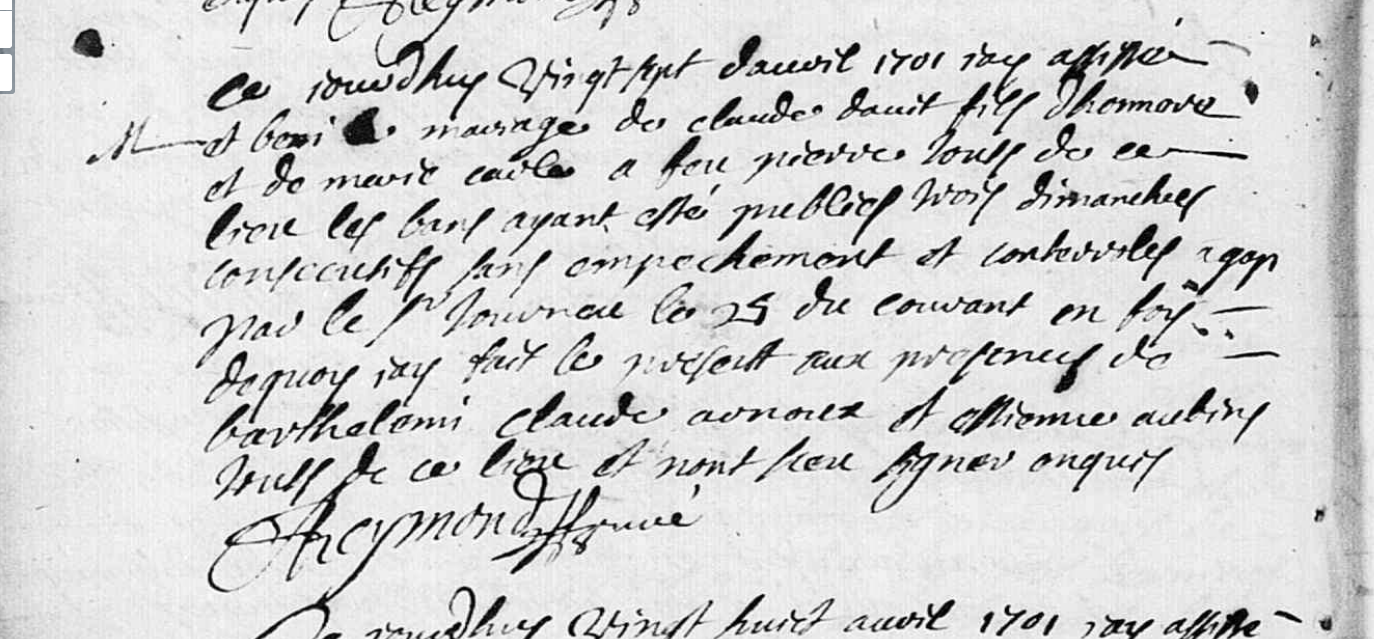 ce jourdhuy vingt sept davril 1701 jay assisté
M et beni le mariage de claude davit fils dhonnore
et de marie caile a feu pierre touts de ce
lieu les bans ayant esté publies trois dimanches
consecutifs sans empechement et conterroles a gap
par le sr tourneu le 25 du courant en foy
dequoy jay fait le present aux presences de
barthelemi claude arnoux et estienne aubin
touts de ce lieu et nont sceu signer enquis
Reymond
Ce jourdhuy vingt huict avril 1701 jay assisté